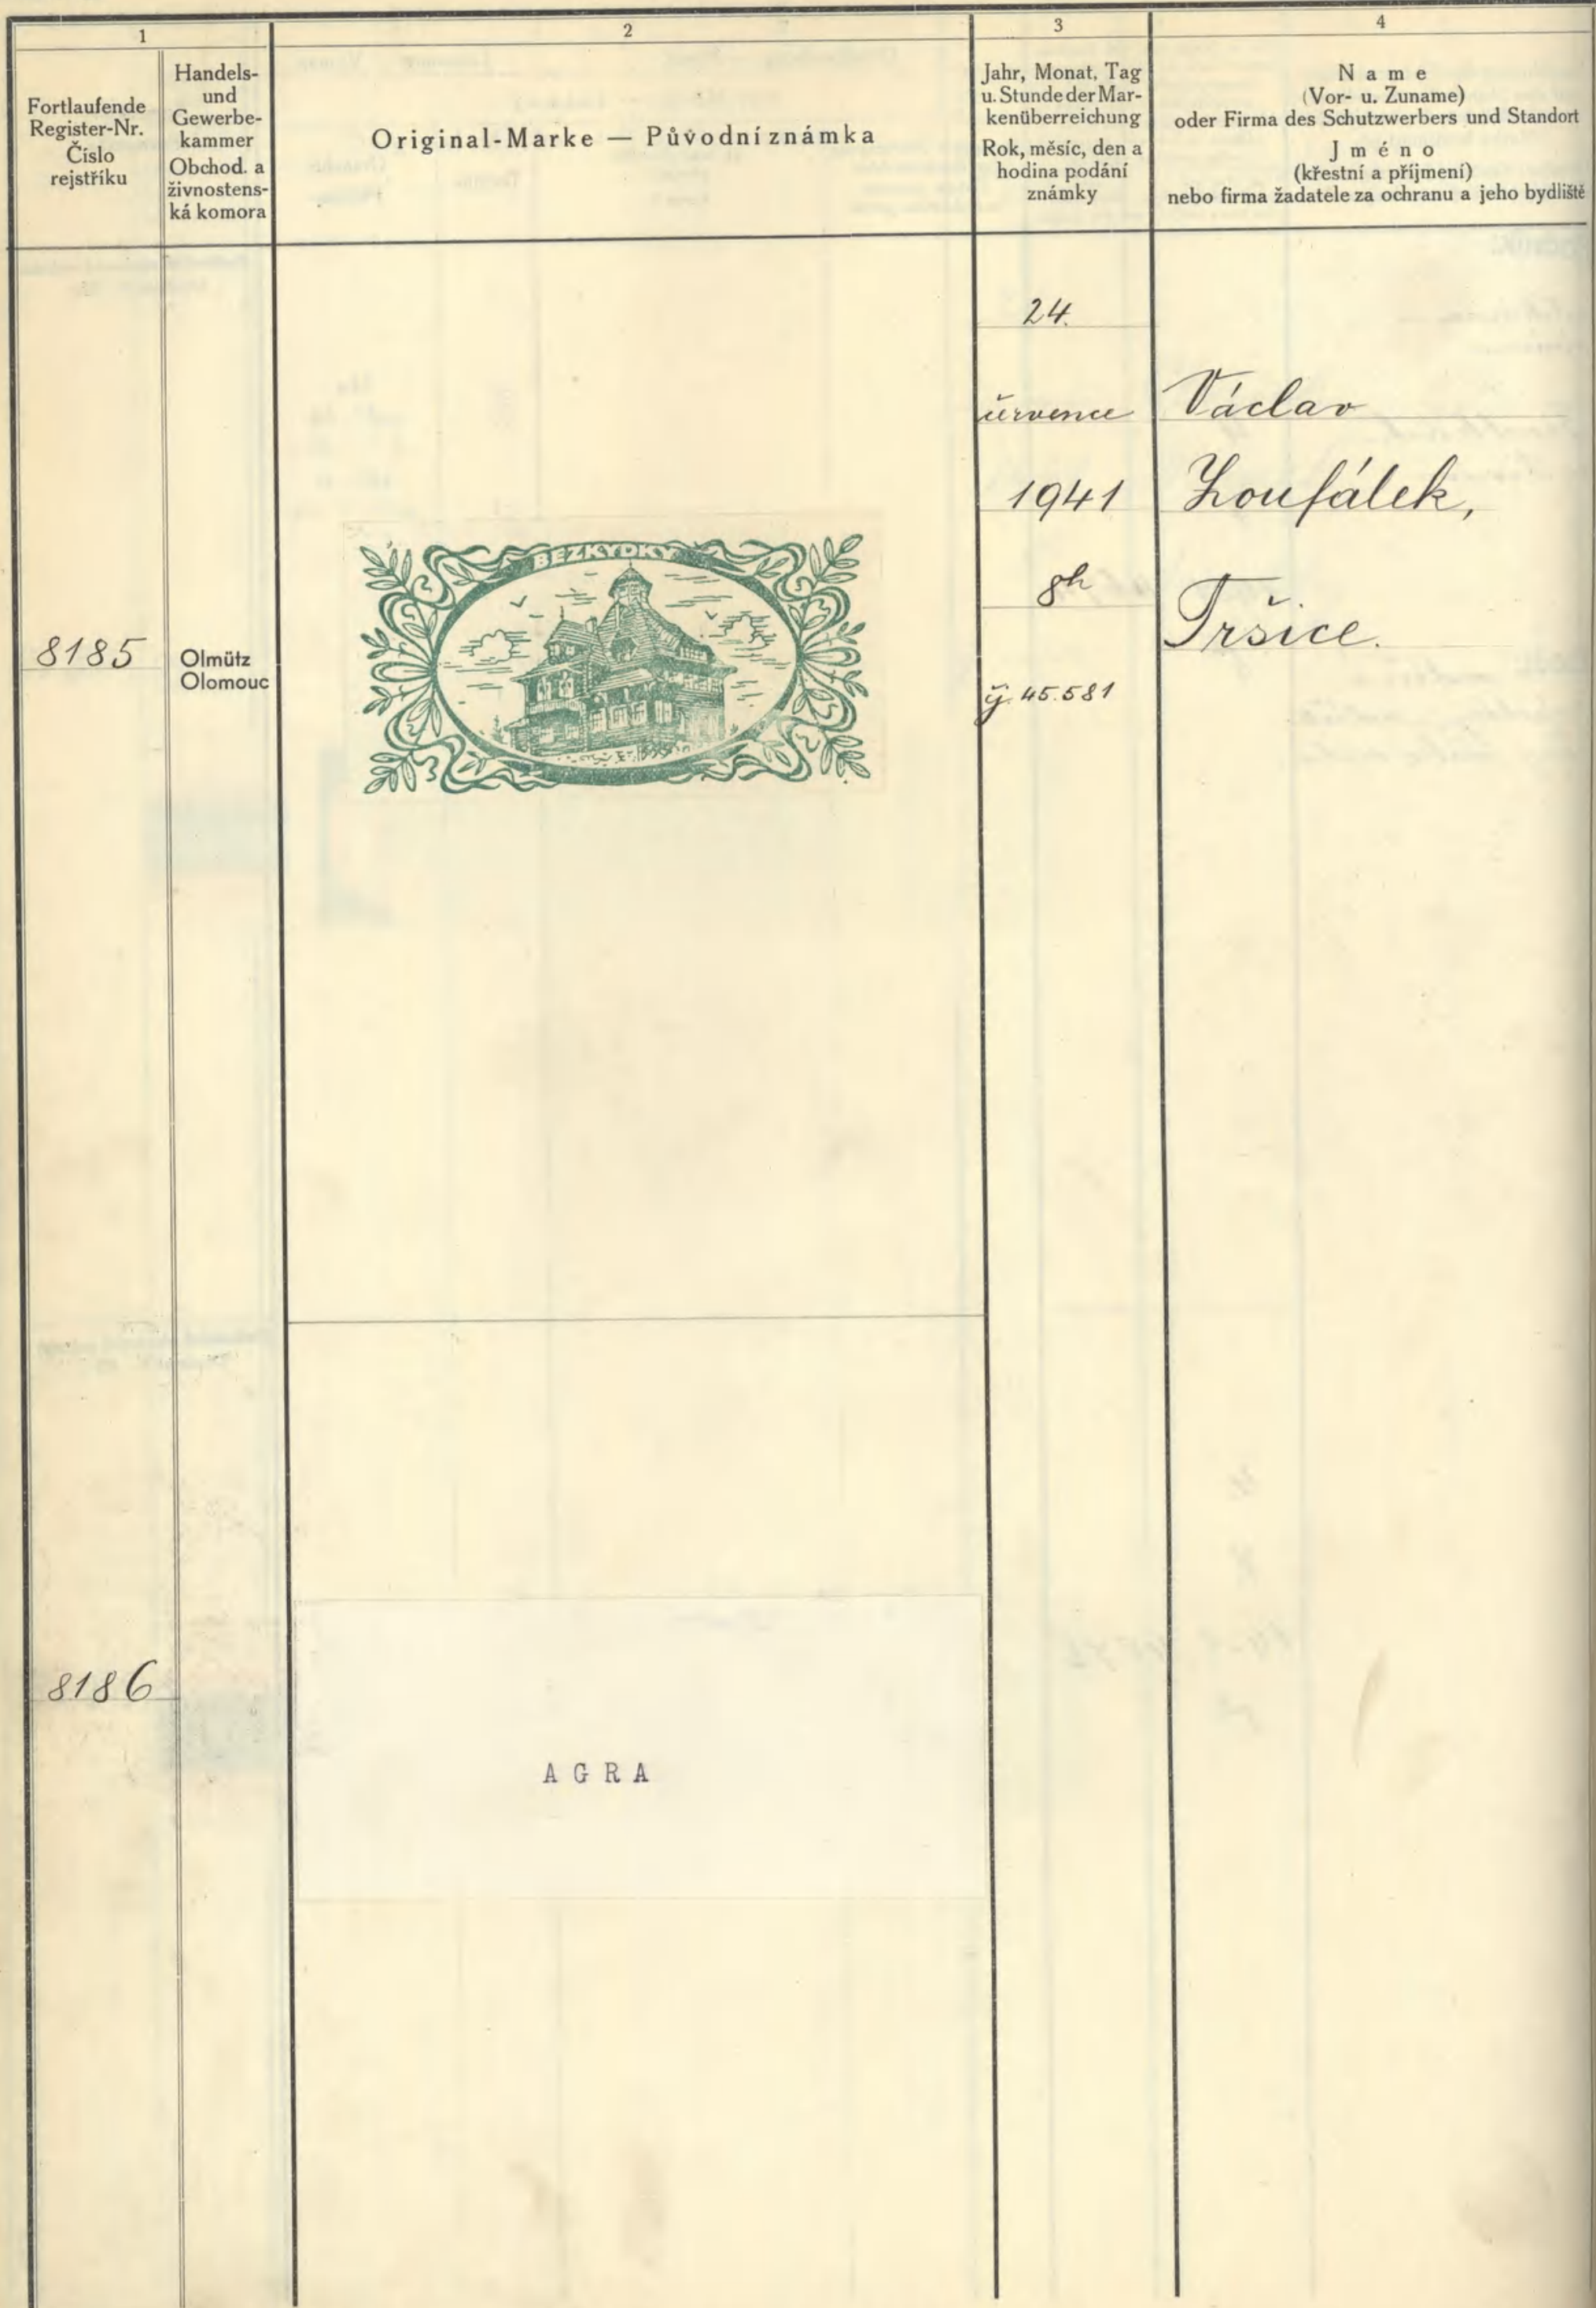 1
2
3
4
Fortlaufende
Register-Nr.
Číslo
rejstříku
Handels-
und
Gewerbe-
kammer
Obchod. a
živnostens-
ká komora
Original-Marke — Původní známka
Jahr, Monat, Tag
u. Stunde der Mar-
kenüberreichung
Rok, měsíc, den a
hodina podání
známky
Name
(Vor- u. Zuname)
oder Firma des Schutzwerbers und Standort
Jméno
(křestní a příjmení)
nebo firma žadatele za ochranu a jeho bydliště
8185
Olmütz
Olomouc
BEZKYDKY
24.
července
1941
8h
čj. 45.581
Václav
Zoufálek,
Tršice.
8186
AGRA